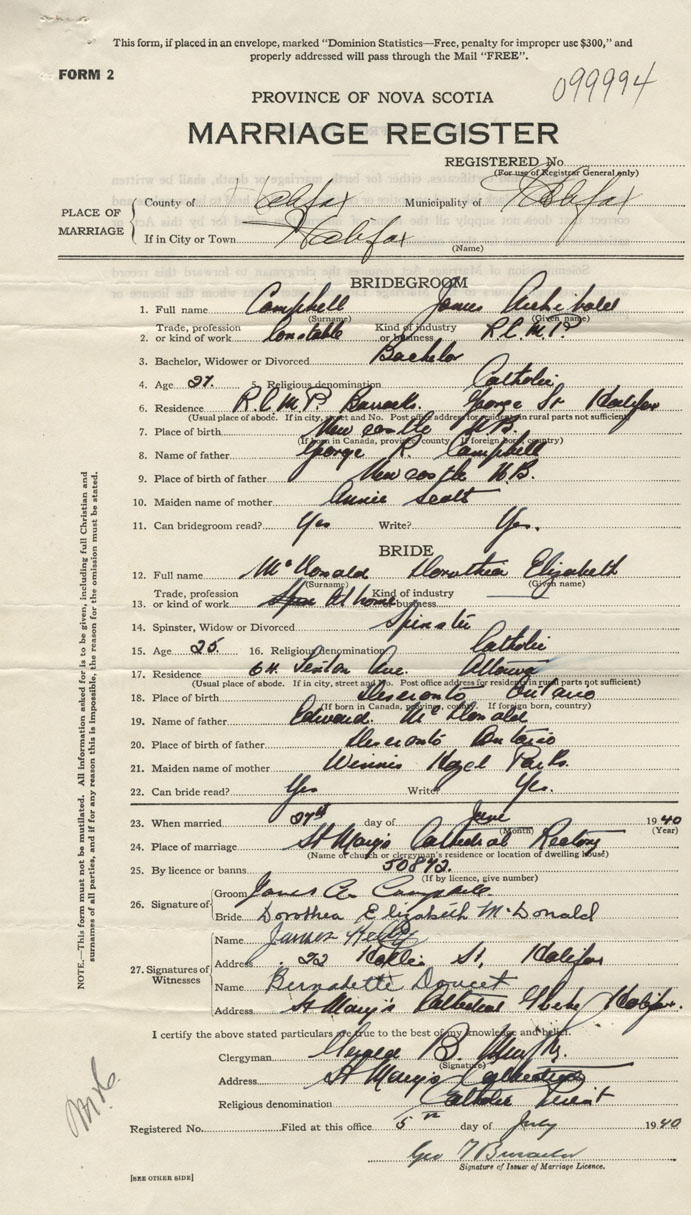 This form, if placed in an envelope, marked "Dominion Statistics—Free, penalty for improper use $300," and
properly addressed will pass through the Mail "FREE".
FORM 2
099994
PROVINCE OF NOVA SCOTIA
MARRIAGE REGISTER
REGISTERED No.
(For use of Registrar General only)
PLACE OF MARRIAGE
County of Halifax Municipality of Halifax
If in City or Town Halifax
(Name)
BRIDEGROOM
1. Full name Campbell James Archibald
(Surname) (Given name)
2. Trade, profession or kind of work Constable Kind of industry or business R.C.M.P.
3. Bachelor, Widower or Divorced Bachelor
4. Age 27. 5. Religious denomination Catholic
6. Residence R.C.M.P. Barracks George St Halifax
(Usual place of abode. If in city, street and No. Post office address for residents in rural parts not sufficient)
7. Place of birth Newcastle N.B.
(If born in Canada, province, county. If foreign born, country)
8. Name of father George R. Campbell
9. Place of birth of father Newcastle N.B.
10. Maiden name of mother Annie Scott
11. Can bridegroom read? Yes Write? Yes.
BRIDE
12. Full name McDonald Dorothea Elizabeth
(Surname) (Given name)
13. Trade, profession or kind of work At home Kind of industry business
14. Spinster, Widow or Divorced Spinster
15. Age 25. 16. Religious denomination Catholic
17. Residence 64 Ave. Ottawa
(Usual place of abode. If in city, street and No. Post office address for resident in rural parts not sufficient)
18. Place of birth Deseronto Ontario
(If born in Canada, province, county. If foreign born, country)
19. Name of father Edward McDonald
20. Place of birth of father Deseronto Ontario
21. Maiden name of mother Hazel Parks.
22. Can bride read? Yes Write Yes.
23. When married 27th day of June 1940
(Month) (Year)
24. Place of marriage St Mary's Cathedral Rectory
(Name of church or clergyman's residence or location of dwelling house)
25. By licence or banns 50892.
(If by licence, give number)
26. Signature of
Groom James A. Campbell.
Bride Dorothea Elizabeth McDonald
27. Signatures of Witnesses
Name James
Address 22 St, Halifax
Name Bernadette Doucet
Address St Mary's Cathedral Glebe, Halifax.
I certify the above stated particulars are true to the best of my knowledge and belief.
Clergyman Gerald B.
(Signature)
Address St Mary's Cathedral
Religious denomination Catholic Priest
Registered No. Filed at this office 5th day of July 1940
Geo
Signature of Issuer of Marriage Licence.
[SEE OTHER SIDE]
NOTE.—This form must not be mutilated. All information asked for is to be given, including full Christian and
surnames of all parties, and if for any reason this is impossible, the reason for the omission must be stated.